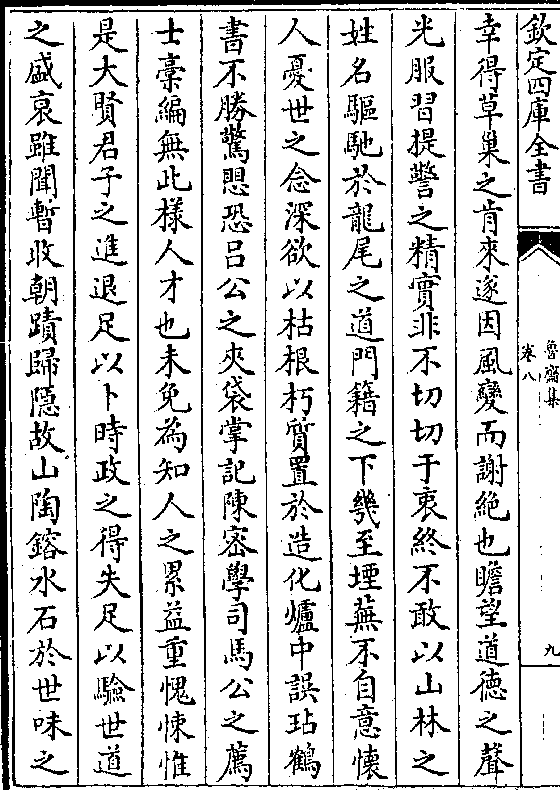 欽定四庫全書
魯齋集
卷八
九
幸得草巢之肯來遂因風變而謝絶也瞻望道德之聲
光服習提警之精實非不切切于衷終不敢以山林之
姓名驅馳於龍尾之道門籍之下幾至堙蕪不自意懷
人憂世之念深欲以枯根朽質置於造化爐中誤玷鶴
書不勝驚愳恐吕公之夾袋掌記陳密學司馬公之薦
士藁編無此樣人才也未免為知人之累益重愧悚惟
是大賢君子之進退足以卜時政之得失足以驗世道
之盛衰雖聞暫收朝蹟歸隠故山陶鎔水石於世味之